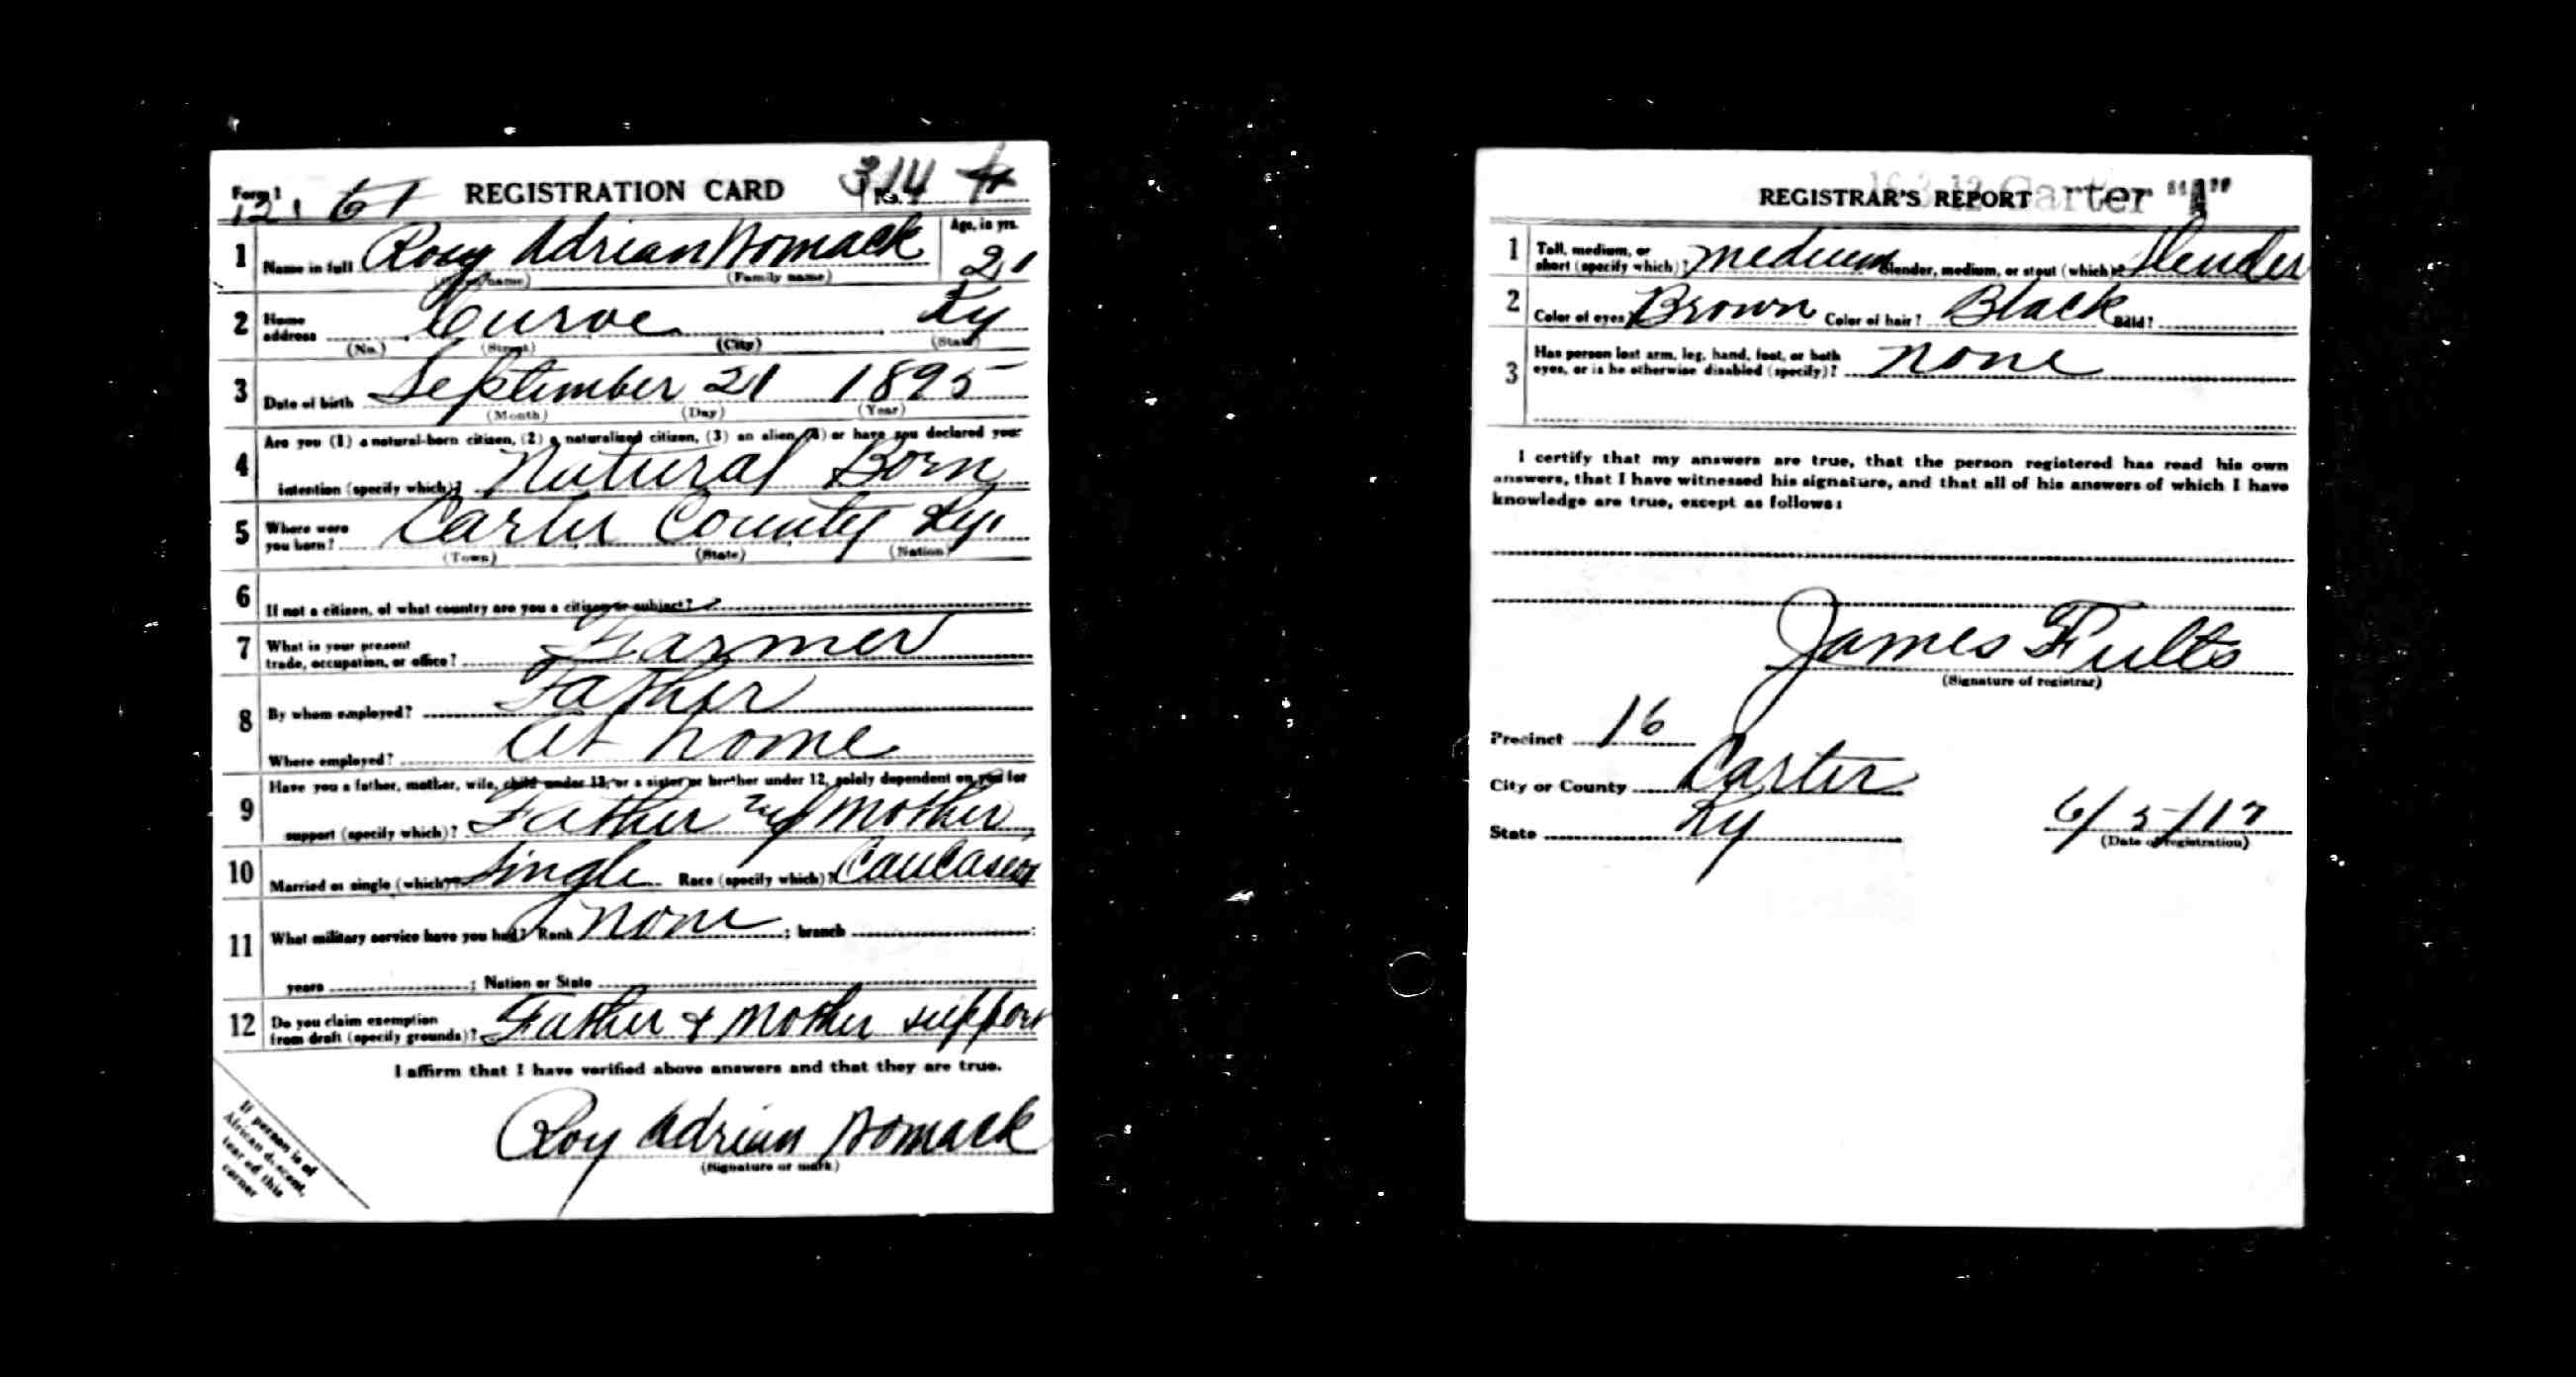 Form 1 REGISTRATION CARD No. 314
1 Name in full Roy Adrian Womack Age, in yrs. 21
(Given name) (Family name)
2 Home address Curve Ky
(No.) (Street) (City) (State)
3 Date of birth September 21 1895
(Month) (Day) (Year)
4 Are you (1) a natural-born citizen, (2) a naturalized citizen, (3) an alien, (4) or have you declared your
intention (specify which)? Natural Born
5 Where were you born? Carter County Ky.
(Town) (State) (Nation)
6 If not a citizen, of what country are you a citizen or subject?
7 What is your present trade, occupation, or office? Farmer
8 By whom employed? Father
Where employed? at home
9 Have you a father, mother, wife, child under 12, or a sister or brother under 12, solely dependent on you for
support (specify which)? Father and Mother
10 Married or single (which)? Single Race (specify which)? Caucasian
11 What military service have you had? Rank None ; branch
years ; Nation or State
12 Do you claim exemption from draft (specify grounds)? Father & Mother support
I affirm that I have verified above answers and that they are true.
Roy Adrian Womack
(Signature or mark)
If person is of
African descent,
tear off this
corner
REGISTRAR'S REPORT 16-3-12 Carter "A"
1 Tall, medium, or short (specify which)? medium Slender, medium, or stout (which)? Slender
2 Color of eyes? Brown Color of hair? Black Bald?
3 Has person lost arm, leg, hand, foot, or both
eyes, or is he otherwise disabled (specify)? none
I certify that my answers are true, that the person registered has read his own
answers, that I have witnessed his signature, and that all of his answers of which I have
knowledge are true, except as follows:
James Fults
(Signature of registrar)
Precinct 16
City or County Carter
State Ky 6/5/17
(Date of registration)